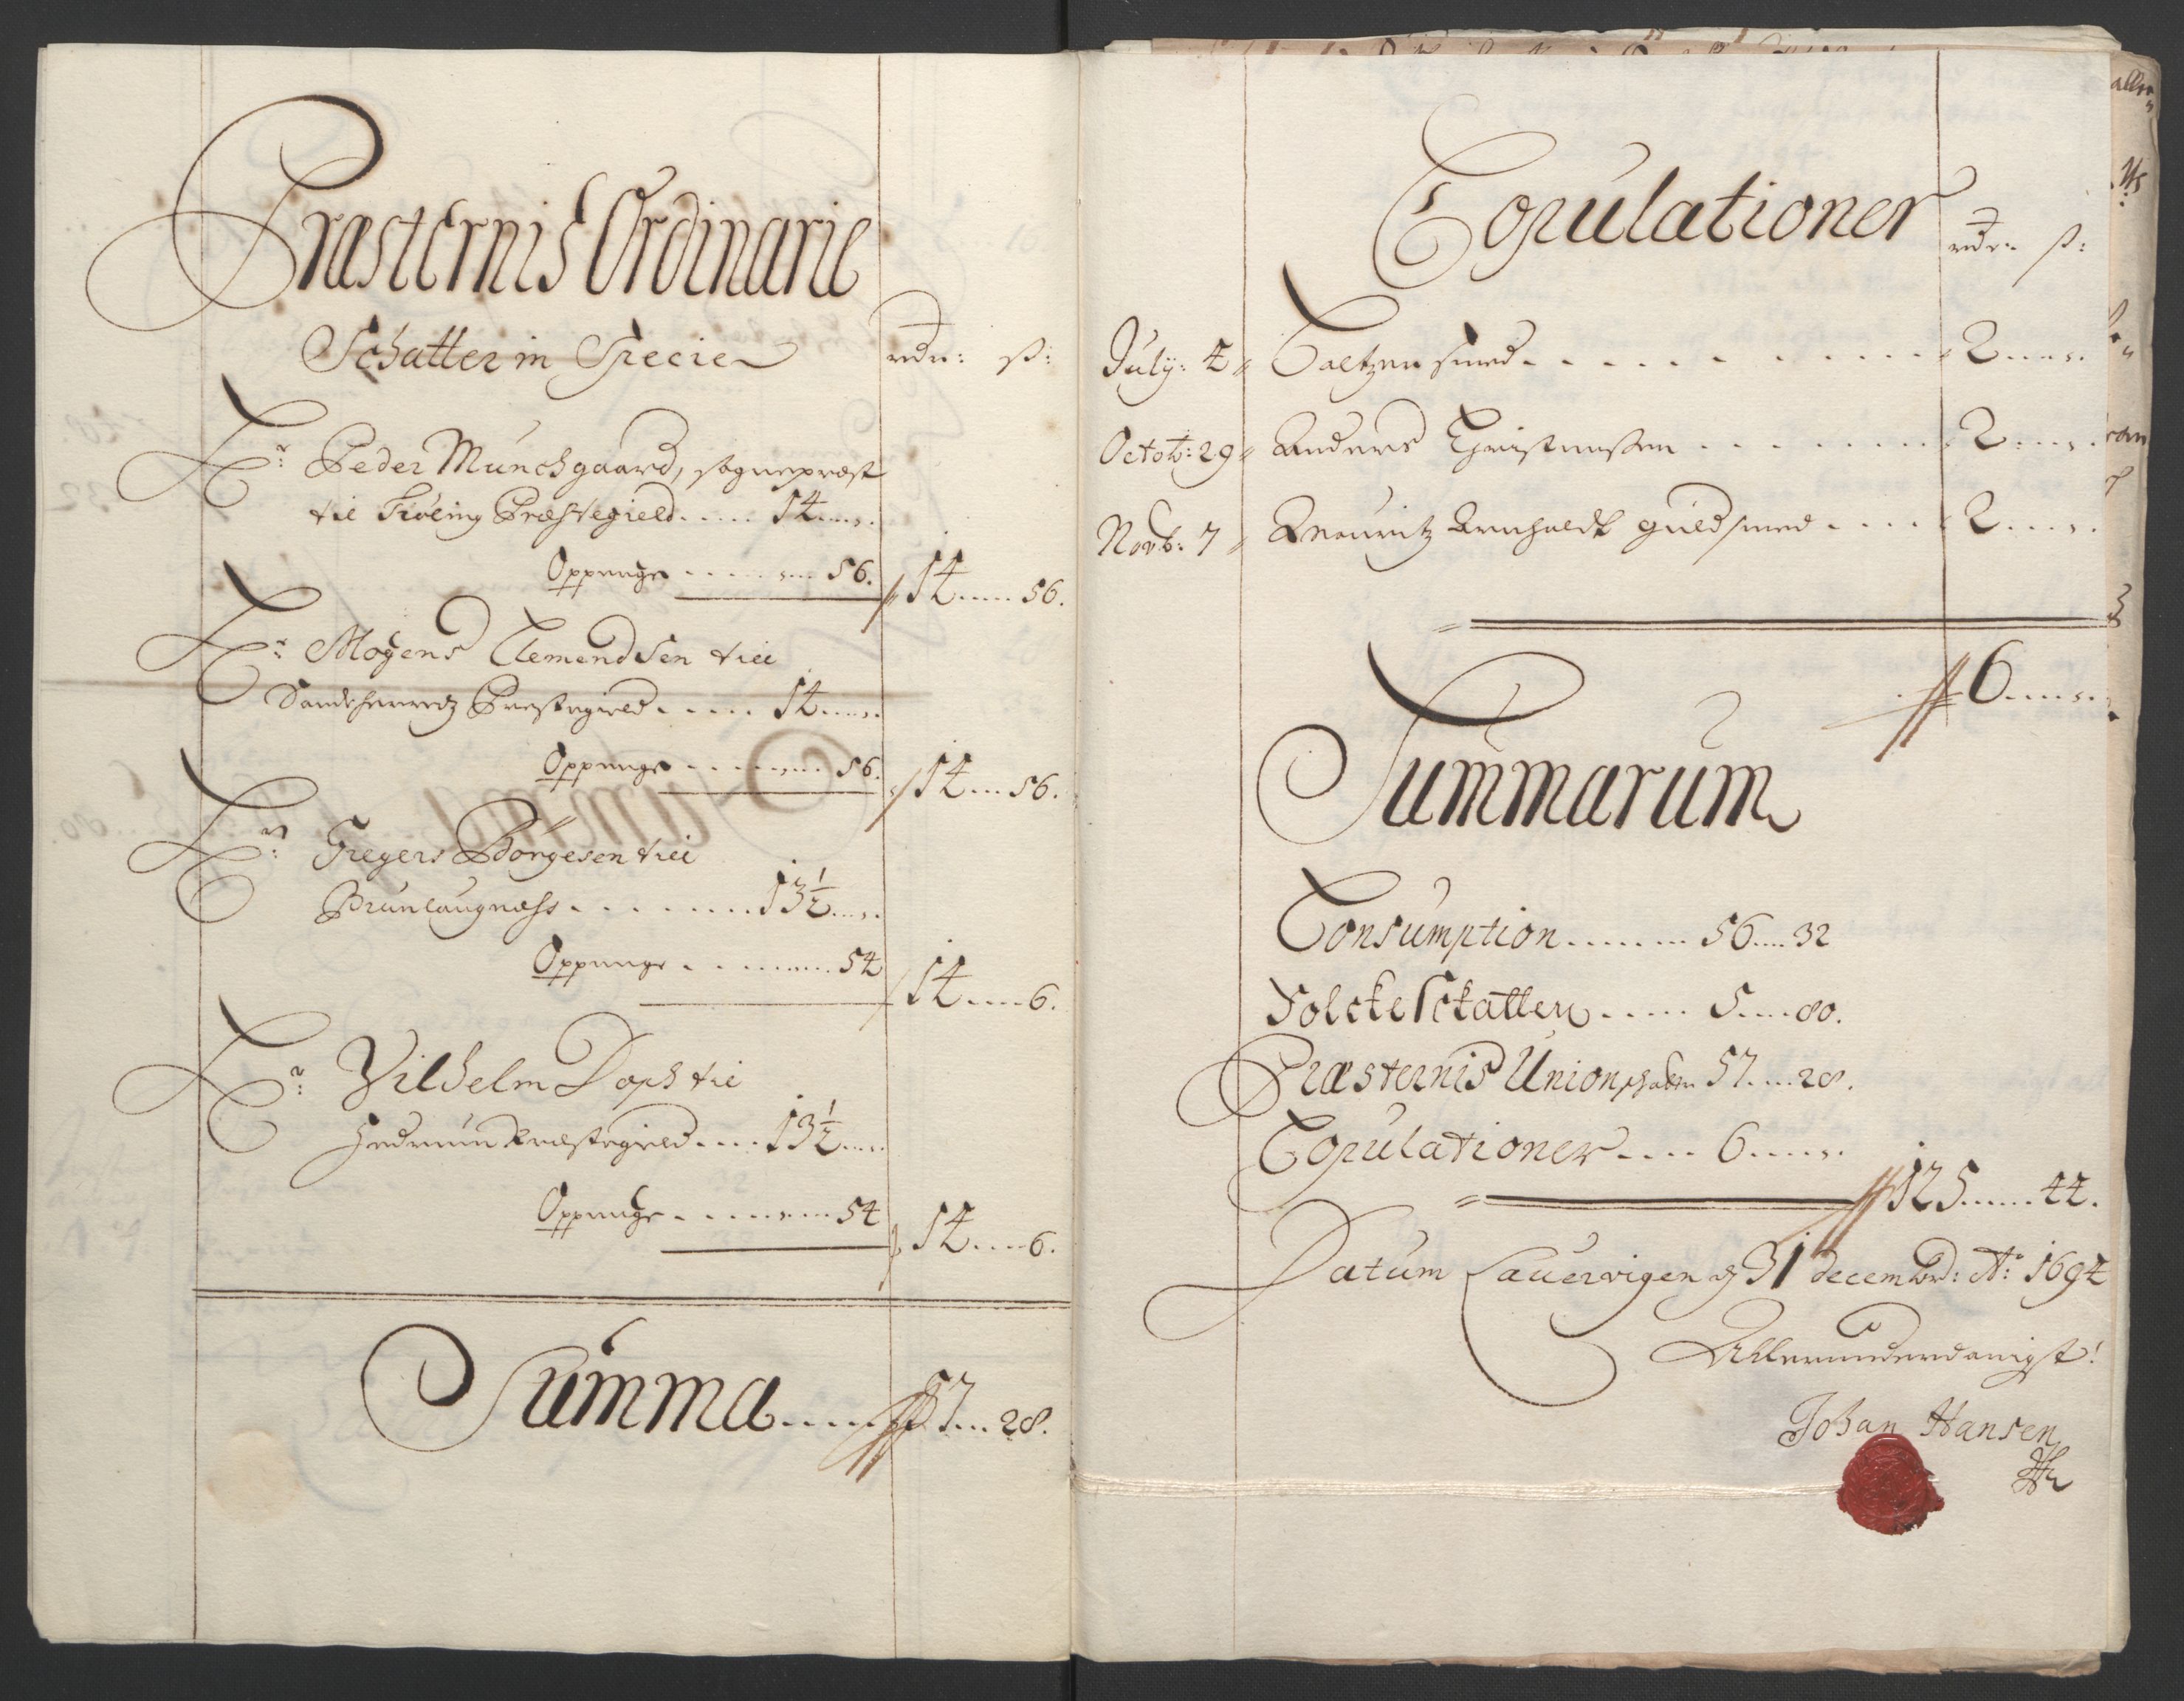 Præsternis Ordinarie
Schatter in Specie rdr: ß:
Hr: Peder Munchgaard, sognepræst
til Tiøling Præstegield..... 14....
Oppenge ........ 56. 14..... 56.
Hr: Mogens Clemendsen till
Sandeherretz Præstegield..... 14....
Oppenge ........ 56. 14.... 56.
Hr: Gregers Børgesen till
Brunlaugness ........ 13½....
Oppenge ........ 54 14..... 6.
Hr: Vilhelm Dop til
Hedrum Præstegield.... 13½....
Oppenge ........ 54 14..... 6.
Summa..... 57... 28.
Copulationer rdr: ß:
July: 4 smed........ 2.....
Octob: 29 Anders Christensen ........ 2.....
Novb: 7 Mouritz guldsmed .... 2.....
6.....
Summarum
Consumption....... 56.... 32
Folcke Skatten..... 5.... 80.
Præsternis Unionschatter 57.... 28.
Copulationer.... 6.....
125...... 44.
Datum Lauervigen d 31 decembr: Ao: 1694
Allerunderdanigst!
Johan Hansen